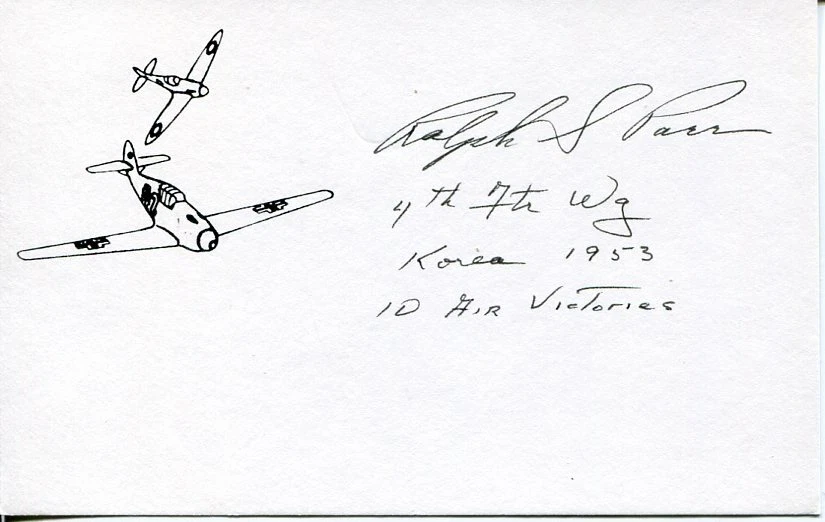 Ralph S Parr
4th Ftr Wg
Korea 1953
10 Air Victories